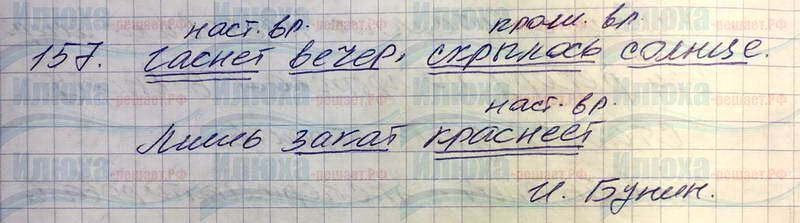 наст. вр. прош. вр.
157. Гаснет вечер, скрылось солнце.
наст. вр.
Лишь закат краснеет
И. Бунин.